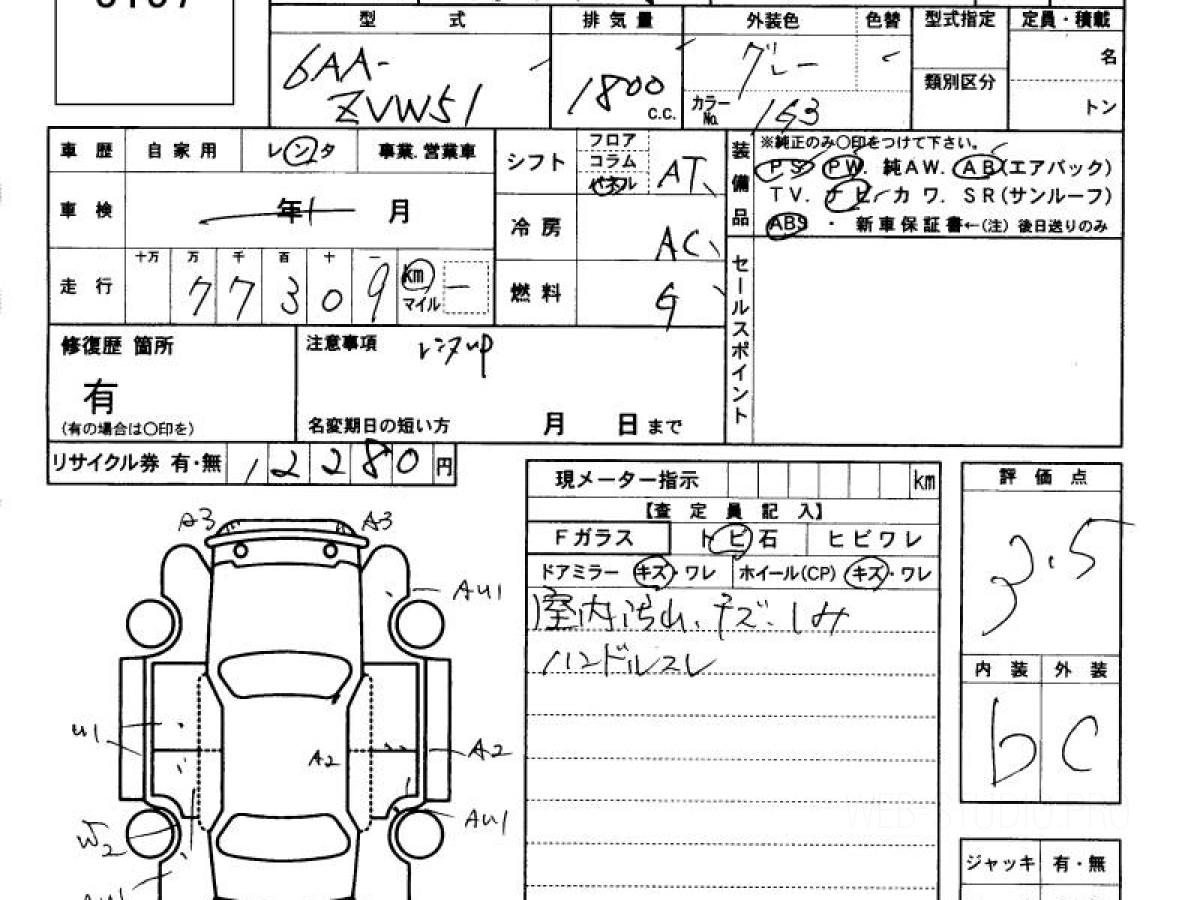 型 式 排気量 外装色 色替 型式指定 定員・積載
6AA-
ZVW51
1800
c.c.
グレー
カラーNo. 1G3
類別区分
名
トン
車歴 自家用 レンタ 事業.営業車
車検 年 月
走行 十万 万 千 百 十 一
7 7 3 0 9 km マイル
シフト フロア コラム パネル AT
冷房 AC
燃料 G
装備品
※純正のみ〇印をつけて下さい。
PS PW. 純AW. AB(エアバック)
TV. ナビ. カワ. SR(サンルーフ)
ABS ・ 新車保証書←(注) 後日送りのみ
セールスポイント
修復歴 箇所
有
(有の場合は〇印を)
注意事項 レンタup
名変期日の短い方 月 日まで
リサイクル券 有・無 12280 円
現メーター指示 km
【査定員記入】
Fガラス トビ石 ヒビワレ
ドアミラー キズ・ワレ ホイール(CP) キズ・ワレ
室内汚れ、キズ.シミ
ハンドルスレ
評価点
3.5
内装 外装
b C
ジャッキ 有・無
A3 A3
AU1
U1
A2
A2
AU1
W2
AU1
WEB-STUDIO.PRO